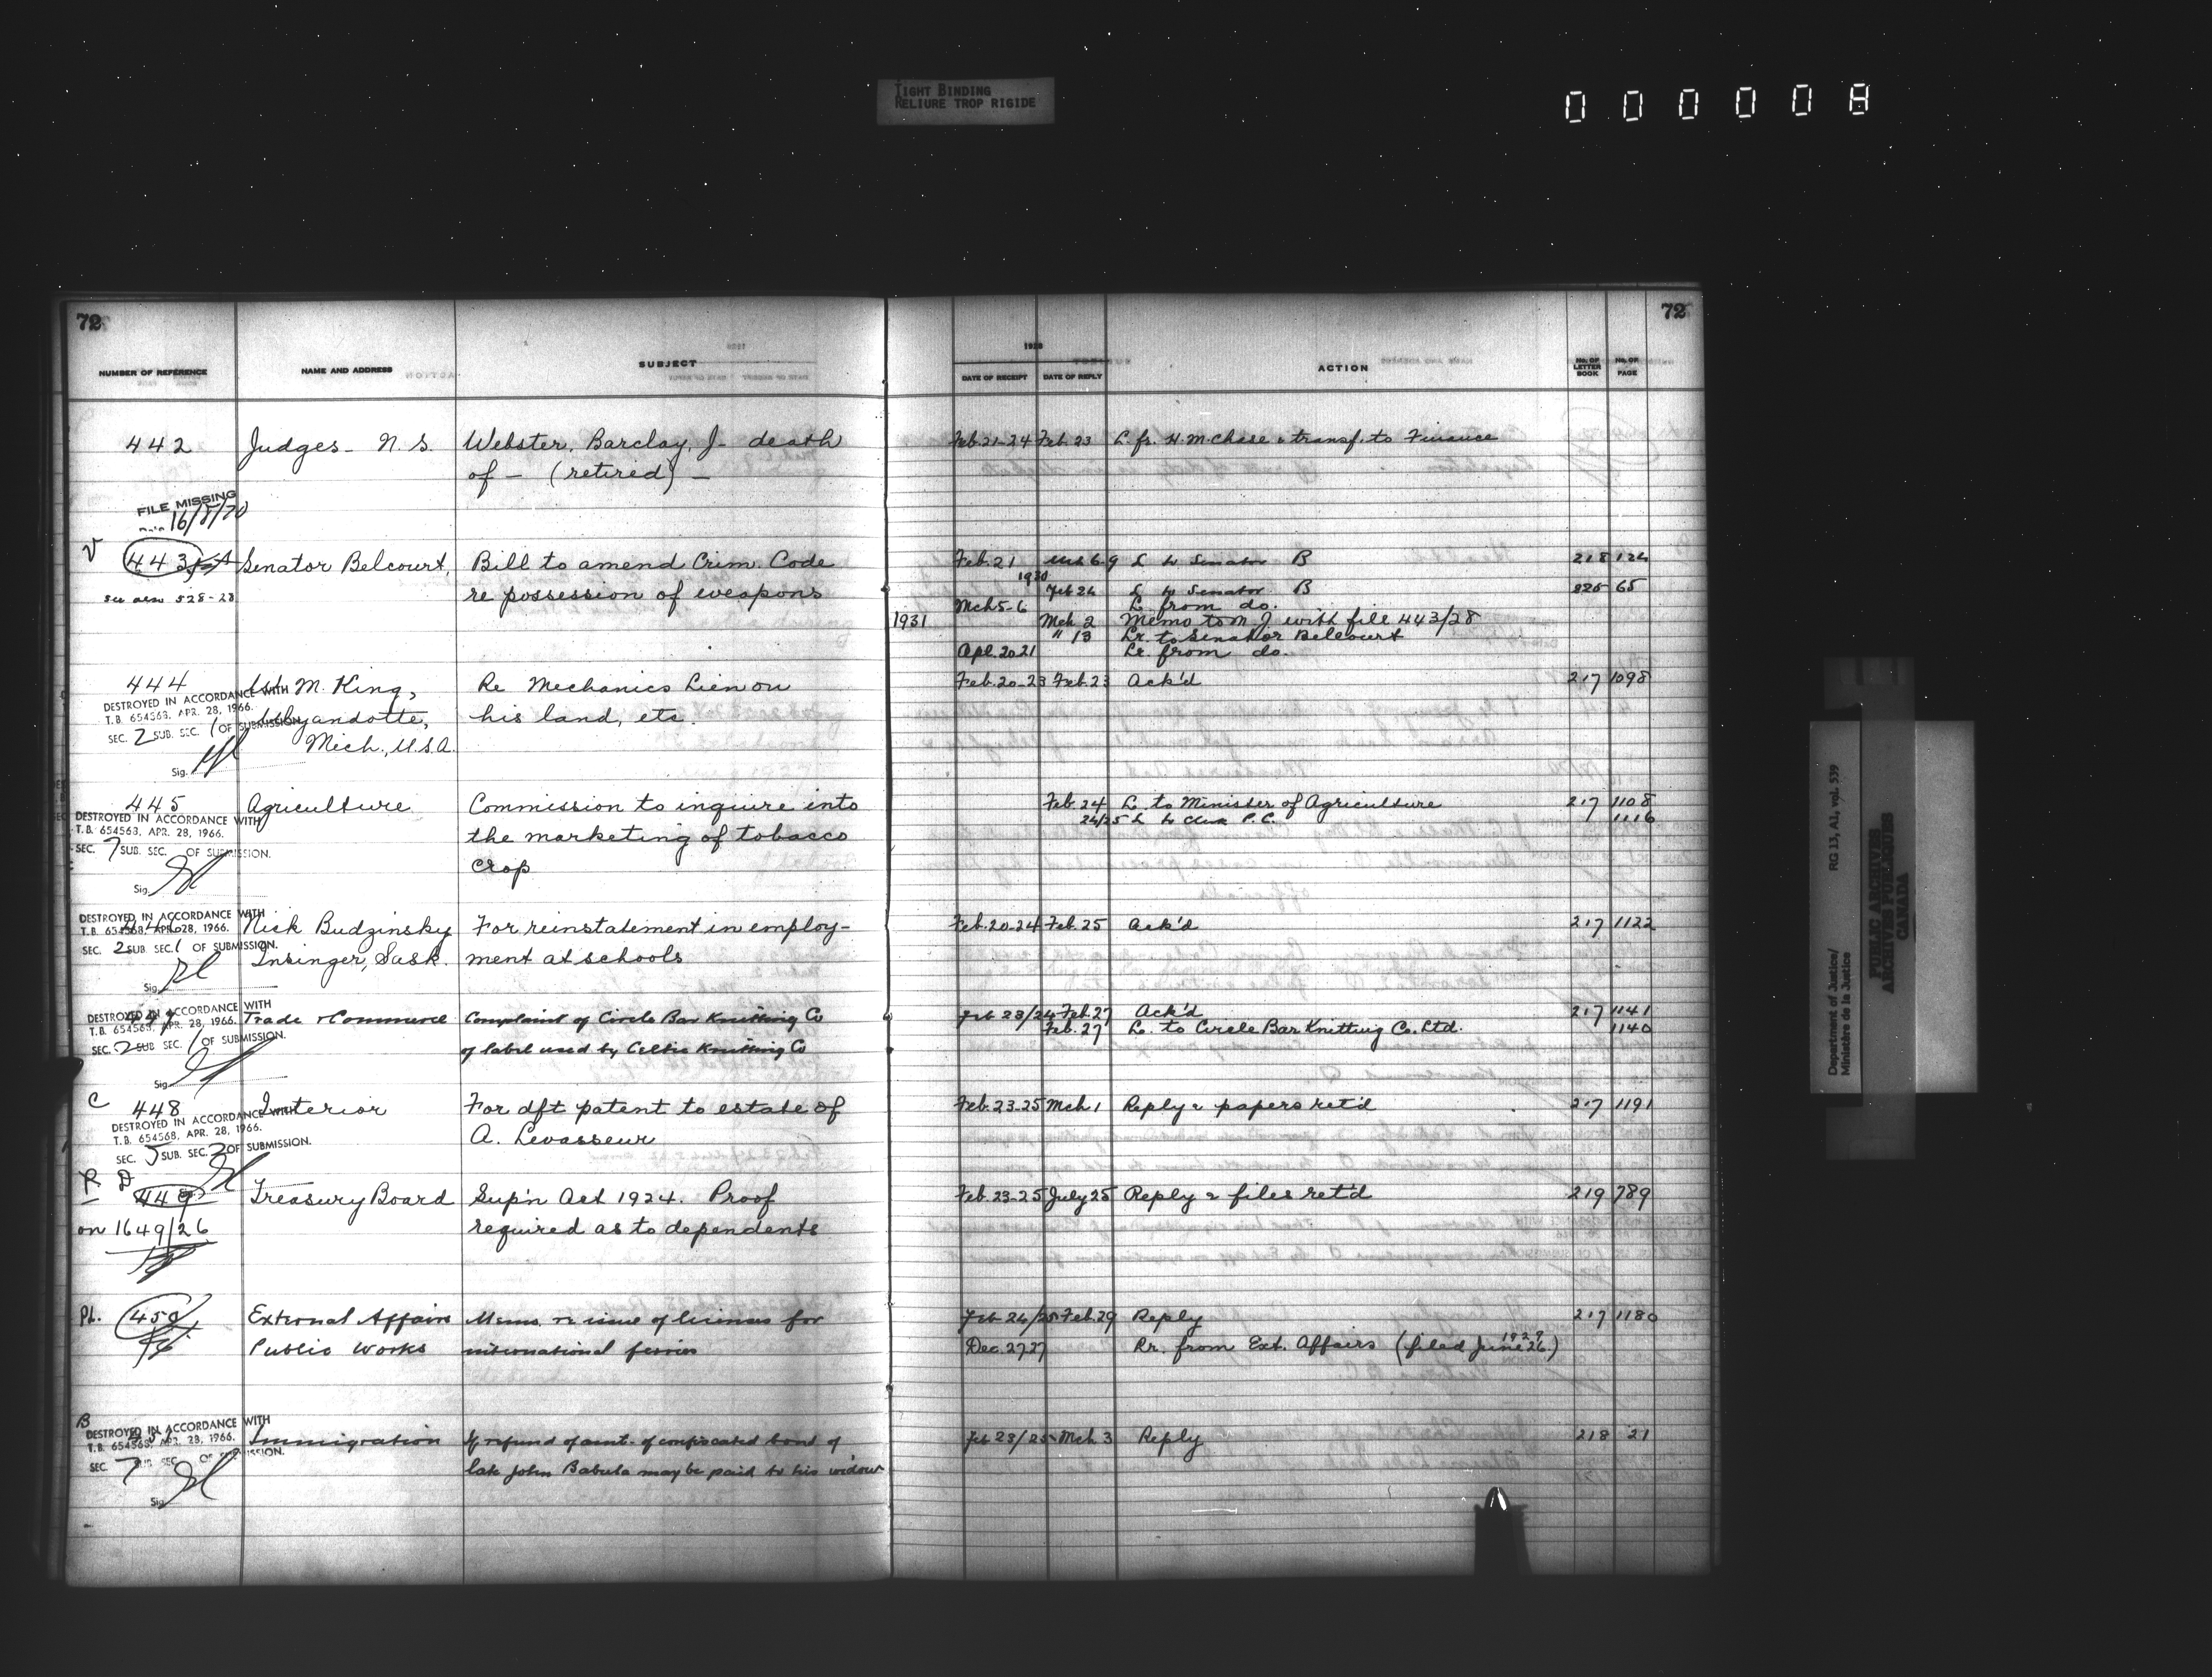 TIGHT BINDING
RELIURE TROP RIGIDE
000008
72
72
NUMBER OF REFERENCE NAME AND ADDRESS SUBJECT
1928
DATE OF RECEIPT DATE OF REPLY ACTION No. OF LETTER BOOK No. OF PAGE
442 Judges - N. S. Webster, Barclay, J - death Feb. 21-24 Feb. 23 L. fr. H. M. Chase & transf. to Finance
of - (retired) -
FILE MISSING
16/8/70
V 443 Senator Belcourt, Bill to amend Crim. Code Feb. 21 L to Senator B 218 124
see also 528-28 re possession of weapons 1930 Feb 24 L to Senator B 65
Mch 5-6 L. from do.
1931 Mch 2 Memo to M J. with file 443/28
" 13 Lr. to Senator Belcourt
Apl. 20 21 Lr. from do.
444 M. King, Re Mechanics Lien on Feb. 20-23 Feb. 23 Ack'd 217 1098
DESTROYED IN ACCORDANCE WITH
T.B. 654563, APR. 28, 1966. Wyandotte, his land, etc.
SEC. 2 SUB. SEC. 1 OF SUBMISSION.
Mich., U.S.A.
Sig.
445 Agriculture Commission to inquire into Feb. 24 L. to Minister of Agriculture 217 1108
24/25 L to Clerk P. C. 1116
DESTROYED IN ACCORDANCE WITH
T.B. 654563, APR. 28, 1966. the marketing of tobacco
SEC. 7 SUB. SEC. OF SUBMISSION.
crop
Sig.
DESTROYED IN ACCORDANCE WITH
T.B. 654563, APR. 28, 1966. Nick Budzinsky For reinstatement in employ- Feb. 20-24 Feb. 25 Ack'd 217 1122
SEC. 2 SUB SEC. 1 OF SUBMISSION.
Insinger, Sask. ment at schools
Sig.
DESTROYED IN ACCORDANCE WITH
T.B. 654563, APR. 28, 1966. Trade & Commerce Complaint of Circle Bar Knitting Co Feb 23/24 Feb. 27 Ack'd 217 1141
Feb. 27 L. to Circle Bar Knitting Co. Ltd. 1140
SEC. 2 SUB SEC. 1 OF SUBMISSION.
of label used by Celtic Knitting Co
Sig.
C 448 Interior For dft patent to estate of Feb. 23-25 Mch 1 Reply & papers ret'd 217 1191
DESTROYED IN ACCORDANCE WITH
T.B. 654568, APR. 28, 1966. A. Levasseur
SEC. 5 SUB. SEC. 2 OF SUBMISSION.
R D
449 Treasury Board Sup'n Act 1924. Proof Feb. 23-25 July 25 Reply & files ret'd 219 789
on 1649/26 required as to dependents
PL. 450 External Affairs Memo. re issue of licenses for Feb 24/25 Feb. 29 Reply 217 1180
Public Works international ferries Dec. 27 27 Rr. from Ext. Affairs (filed June 26. 1929)
B
DESTROYED IN ACCORDANCE WITH
T.B. 654563, APR. 28, 1966. Immigration If refund of amt. of confiscated bond of Feb 23/25 Mch 3 Reply 218 21
SEC. 7 SUB SEC. OF SUBMISSION.
late John Babula may be paid to his widow
Sig.
Department of Justice/ RG 13, A1, vol. 539
Ministère de la Justice
PUBLIC ARCHIVES
ARCHIVES PUBLIQUES
CANADA